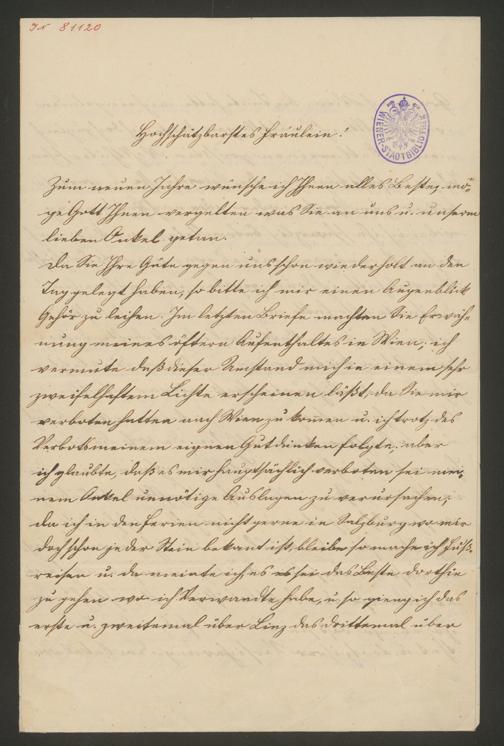 IN 81120
WIENER-STADTBIBLIOTHEK
Hochschätzbarstes Fräulein!
Zum neuen Jahre wünsche ich Ihnen alles Beste, mö-
ge Gott Ihnen vergelten was Sie an uns u. unserm
lieben Onkel getan.
Da Sie Ihre Güte gegen uns schon wiederholt an den
Tag gelegt haben, so bitte ich mir einen Augenblick
Gehör zu leihen. Im letzten Briefe machten Sie Erwäh-
nung meines öftern Aufenthaltes in Wien, ich
vermute daß dieser Umstand mich in einem sehr
zweifelhaftem Lichte erscheinen läßt, da Sie mir
verboten hatten nach Wien zu kommen u. ich trotz des
Verbots meinem eignen Gutdünken folgte, aber
ich glaubte, daß es mir hauptsächlich verboten sei mei-
nem Onkel unnötige Auslagen zu verursachen,
da ich in den Ferien nicht gerne in Salzburg wo mir
doch schon jeder Stein bekant ist, bleibe, so mache ich Fuß-
reisen u. da meinte ich, es sei das Beste dorthin
zu gehen wo ich Verwandte habe, u. so gieng ich das
erste u. zweitemal über Linz das drittemal über